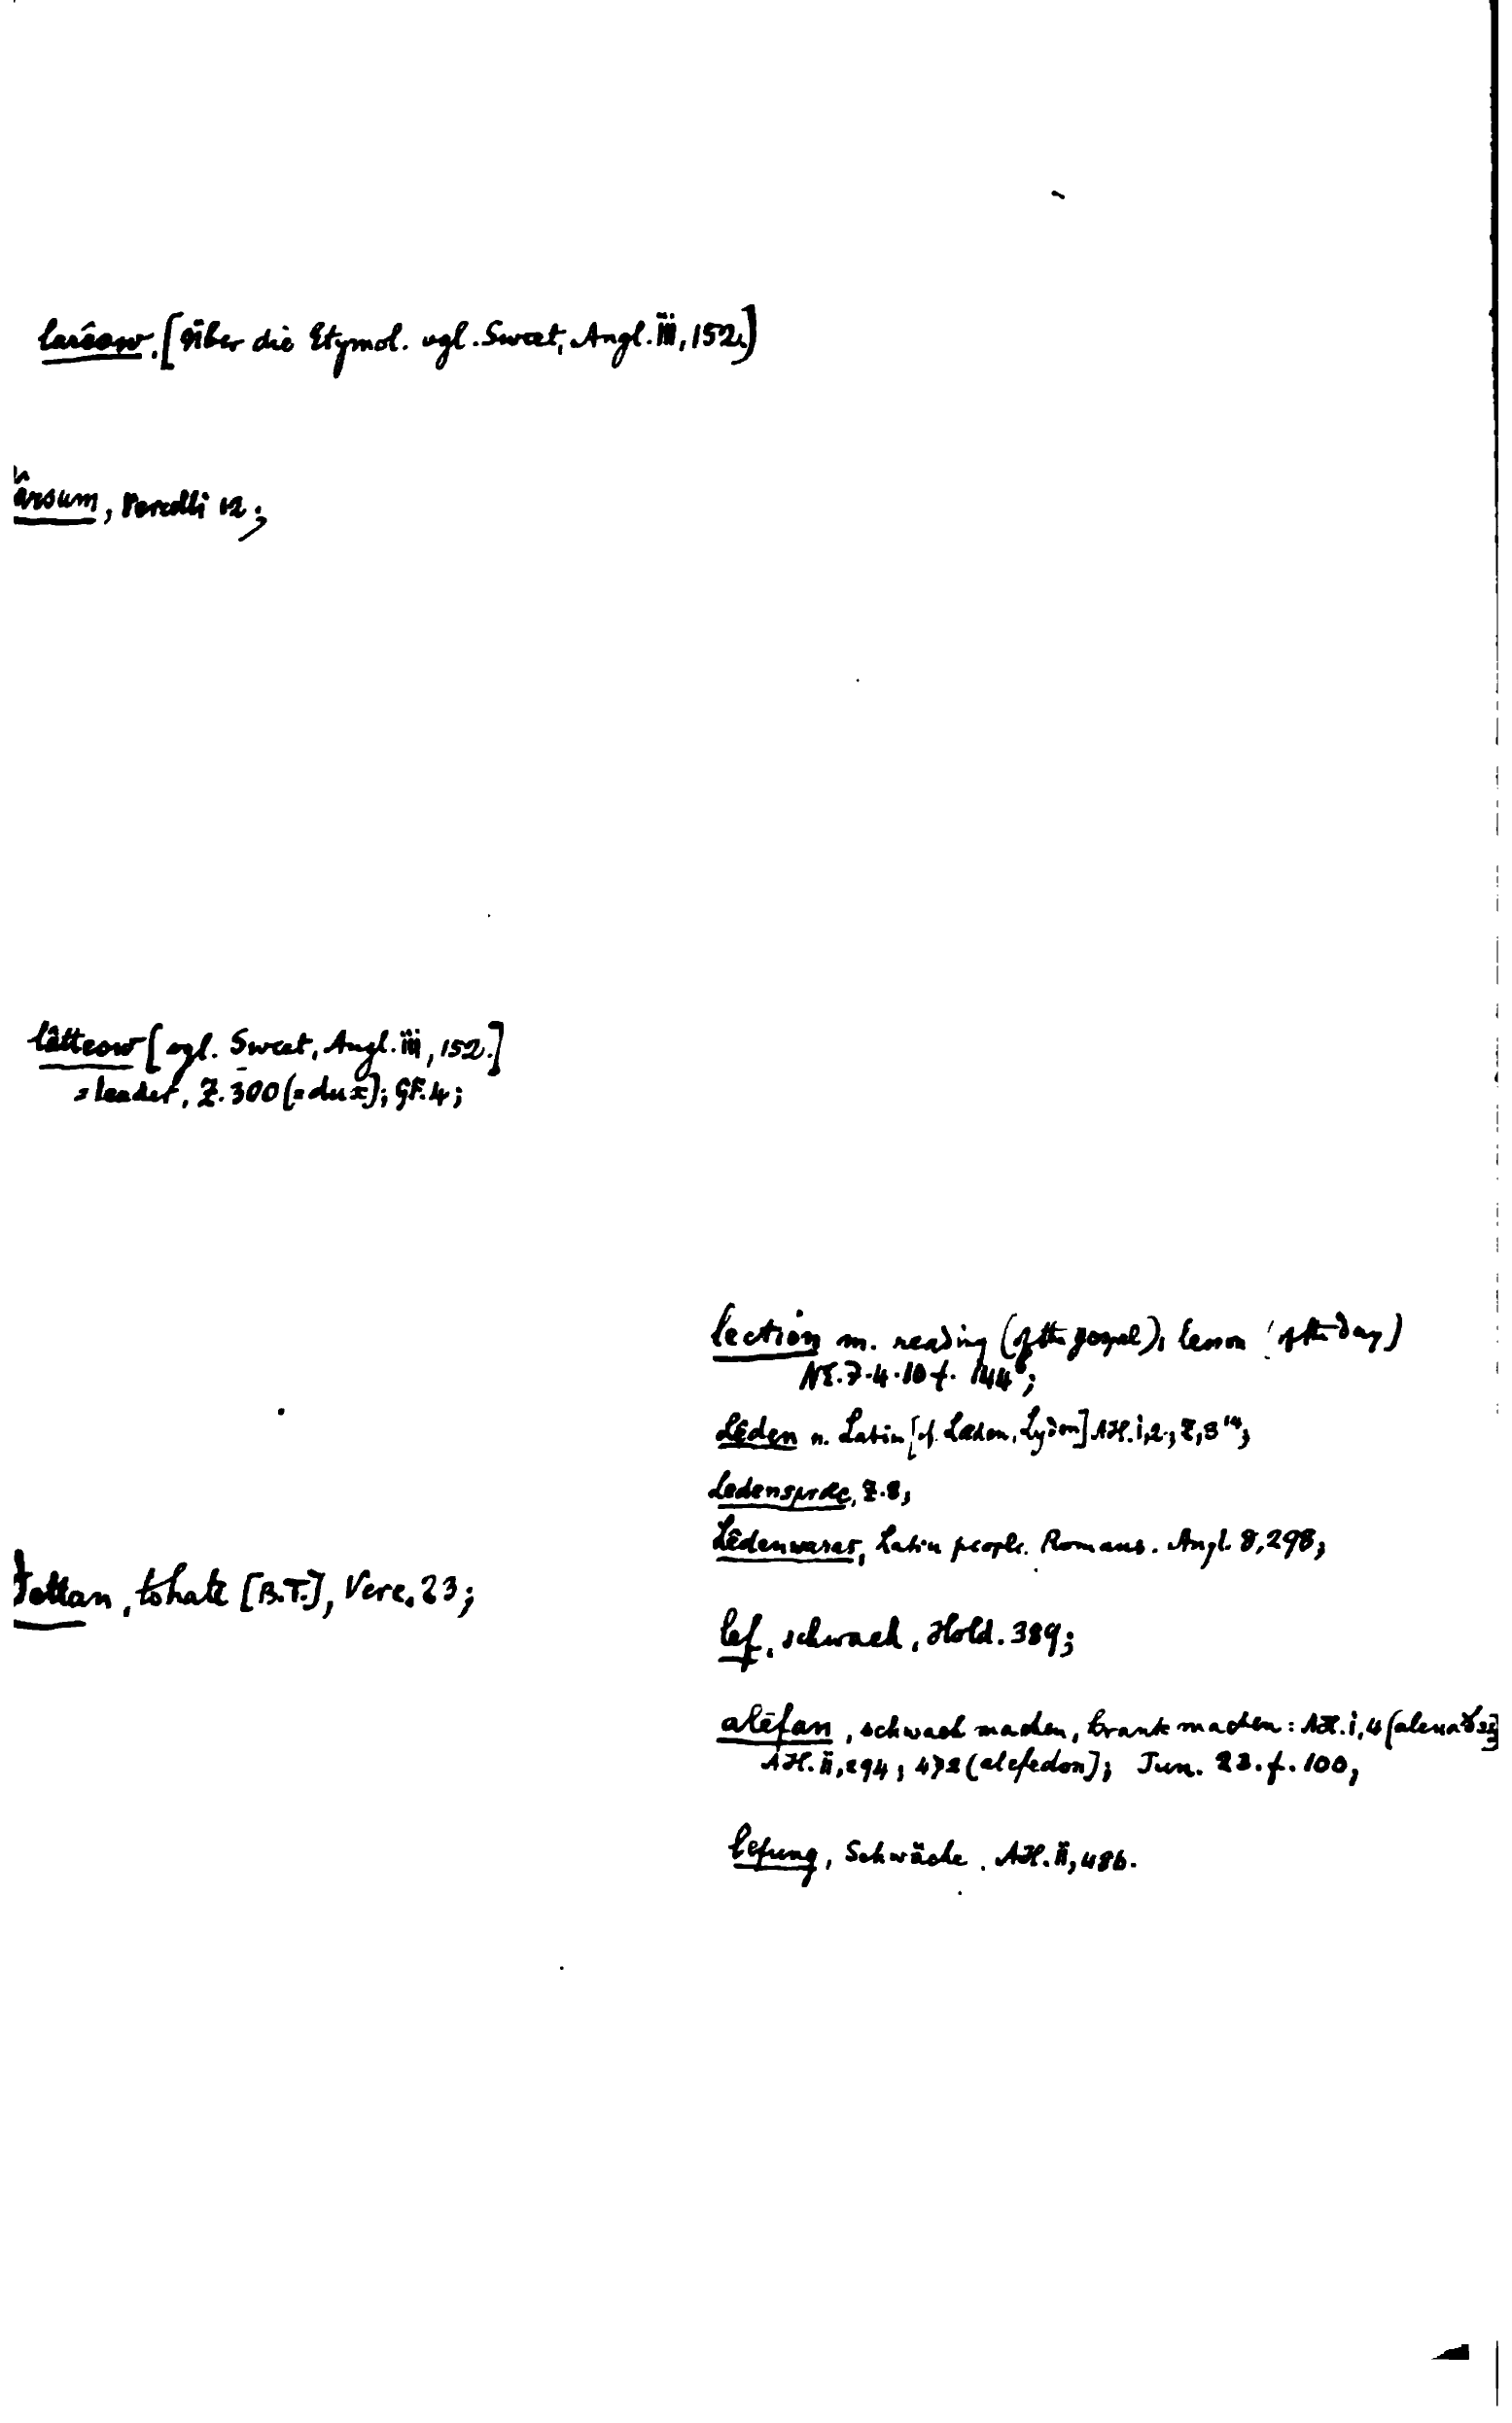 lareow, [Über die Etymol. vgl. Sweet, Angl. iii, 152.]
ârsum, Vercelli 12;
lâtteow [vgl. Sweet, Angl. iii, 152.]
= leader, Z. 300 (= dux); GF. 4;
lection m. reading (of the gospel), lesson (of the day)
NE. 7. 4. 10 f. 144b;
Lêden n. Latin [cf. Læden, Lyden] AH. i, 2; Z, 3 14;
Ledenspræc, Z. 8;
Lêdenware, Latin people. Romans. Angl. 8, 298;
tettan, to hate [B.T.], Verc. 23;
lef, schwach, Hold. 389;
alêfan, schwach machen, krank machen: AH. i, 4
AH. ii, 294; 472 (alefedon); Jun. 23. f. 100;
lefung, Schwäche. AH. ii, 486.